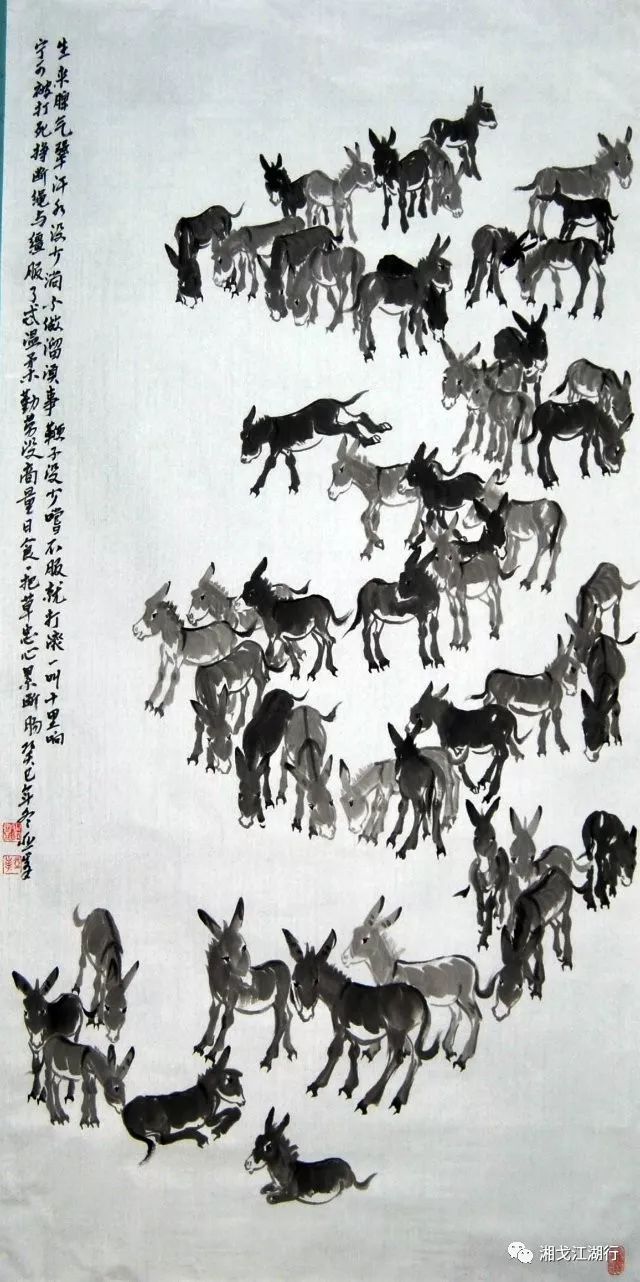 生来脾气犟汗水没少淌不做溜须事鞭子没少嚐不服就打滚一叫十里响
宁可被打死挣断绳与缰服了我温柔勤劳没商量日食一把草忠心累断肠癸巳年冬
湘戈江湖行